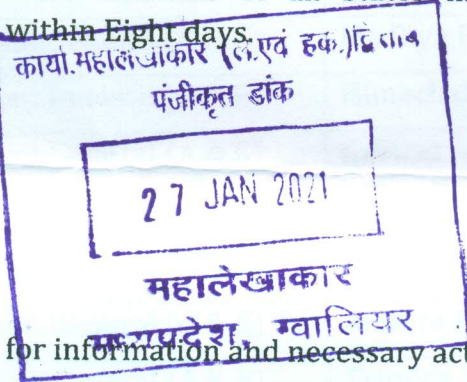 within Eight days.
कार्या. महालेखाकार (ले.एवं हक.)द्वितीय
पंजीकृत डाक
27 JAN 2021
महालेखाकार
मध्यप्रदेश, ग्वालियर
for information and necessary act